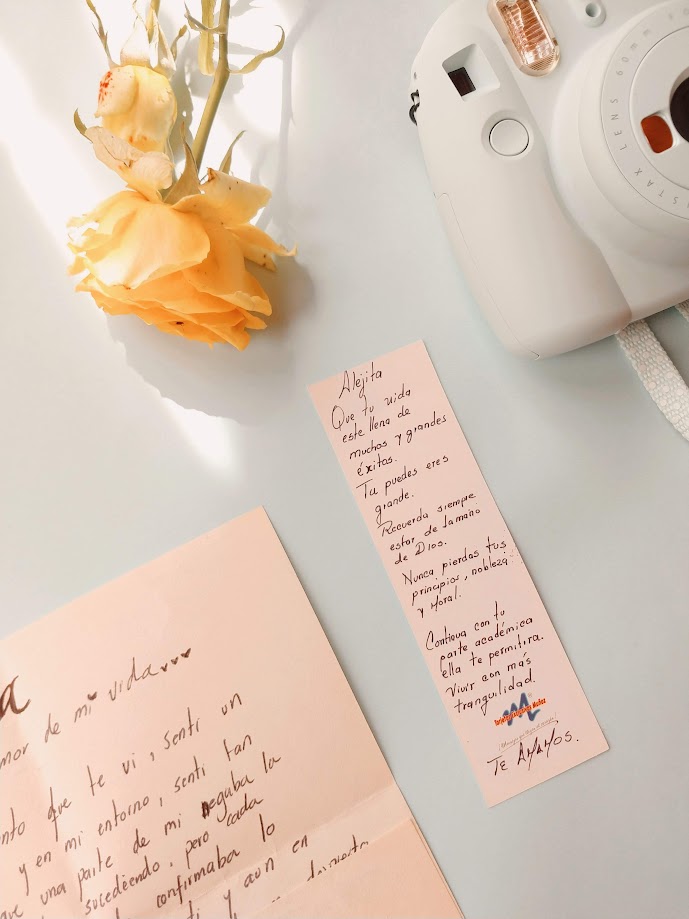 60mm
INSTAX LENS
Alejita
Que tu vida
este llena de
muchos y grandes
éxitos.
Tu puedes eres
grande.
Recuerda siempre
estar de tamaño
de Dios.
Nunca pierdas tus
principios, nobleza
y Moral.
Continua con tu
parte académica
ella te permitira.
Vivir con más
tranquilidad.
TE AMAMOS.
mor de mi vida...
nto que te vi, senti un
y en mi entorno, senti tan
una parte de mi negaba la
sucediendo, pero cada
confirmaba lo
y aun en